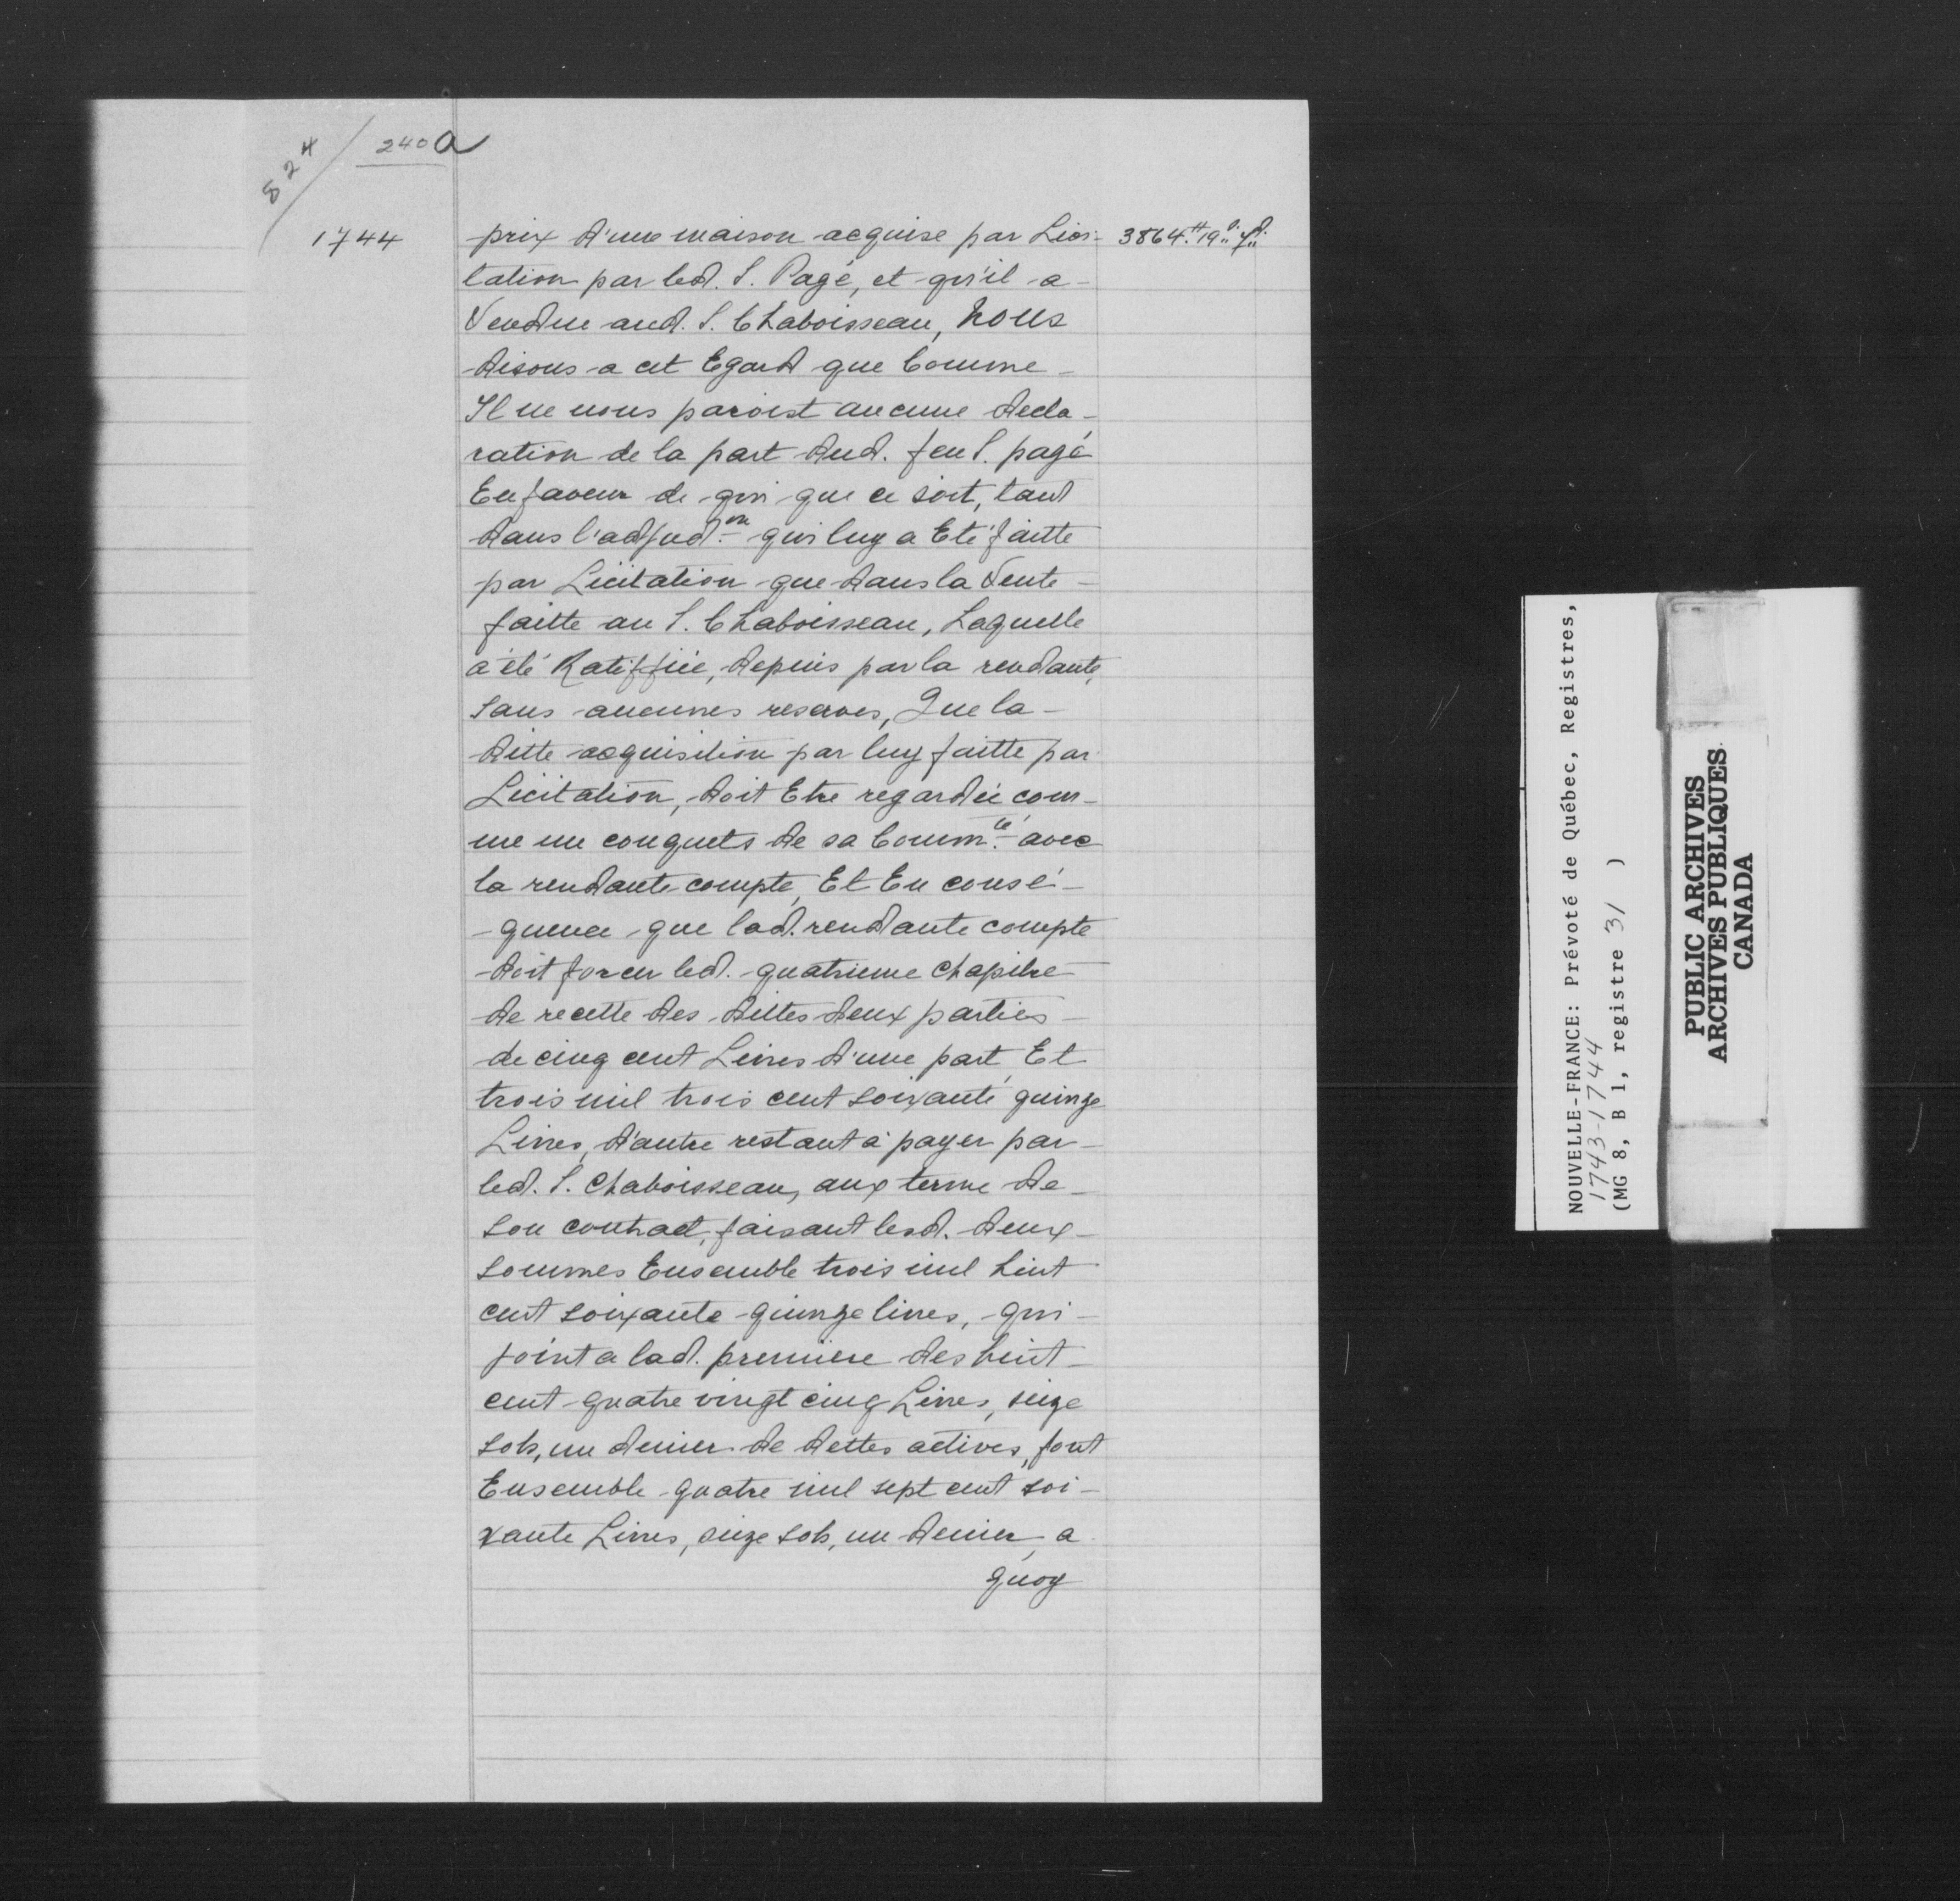 824 / 240a
1744
prix d'une maison acquise par Lici- 3864.# 19s. 7d.
tation par led. S. Pagé, et qu'il a
Vendue aud. S. Chaboisseau, nous
disons a cet Egard que Comme
Il ne nous paroist aucune decla-
ration de la part dud. feu S. pagé
En faveur de qui que ce soit, tant
dans l'adjud.on qui luy a Eté faitte
par Licitation que dans la Vente
faitte au S. Chaboisseau, Laquelle
a été Ratiffiée, depuis par la rendante,
sans aucunes reserves, Que la
ditte acquisition par luy faitte par
Licitation, doit Etre regardée com-
me un conquets de sa Comm.té avec
la rendante compte, Et En consé-
quence que lad. rendante compte
doit forcer led. quatrieme chapitre
de recette des dittes deux parties
de cinq cent Livres d'une part, Et
trois mil trois cent soixante quinze
Livres, d'autre restant à payer par
led. S. Chaboisseau, aux terme de
son contract, faisant lesd. deux
sommes Ensemble trois mil huit
cent soixante quinze livres, qui
joint a lad. premiere des huit
cent quatre vingt cinq Livres, seize
sols, un denier de dettes actives, font
Ensemble quatre mil sept cent soi-
xante Livres, seize sols, un denier, a
quoy
NOUVELLE-FRANCE: Prévoté de Québec, Registres,
1743-1744
(MG 8, B 1, registre 31 )
PUBLIC ARCHIVES
ARCHIVES PUBLIQUES
CANADA